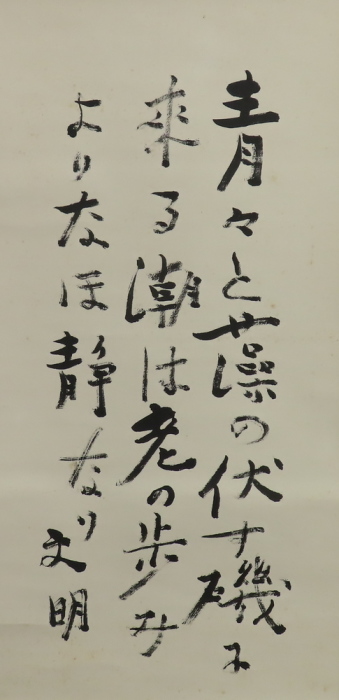 青々と藻の伏す磯に
来る潮は老の歩み
よりなほ静なり 文明